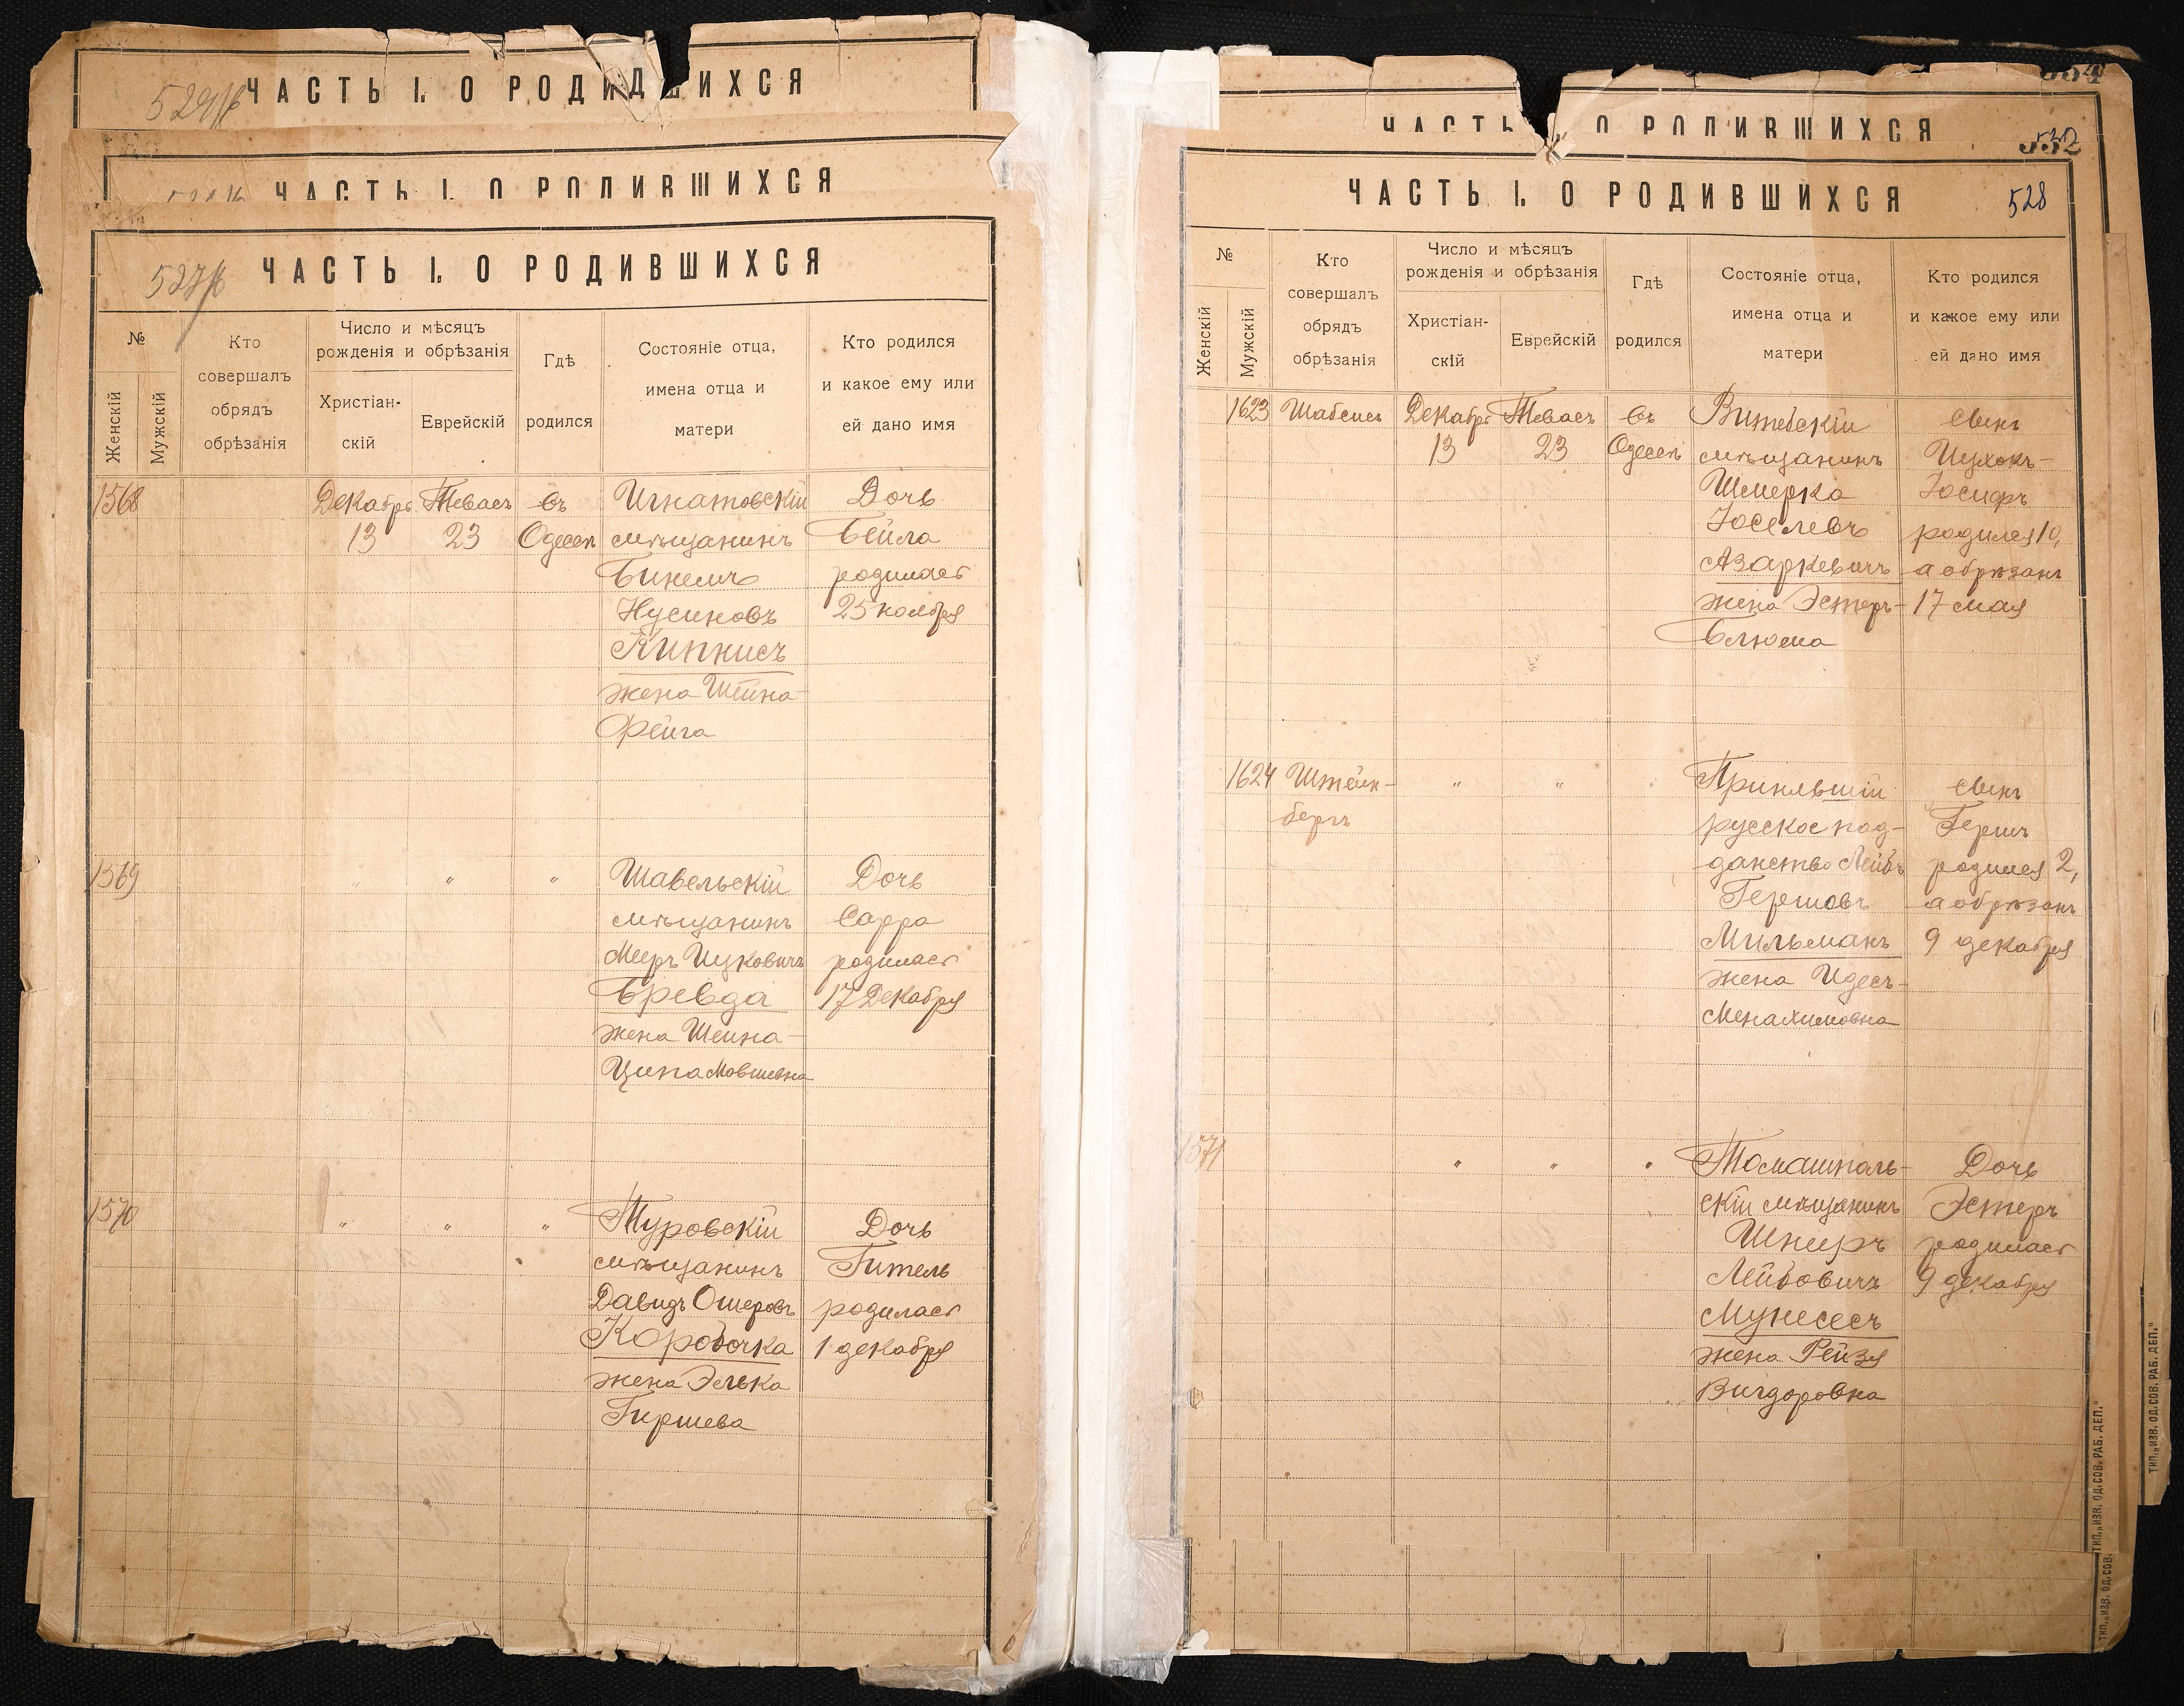 ЧАСТЬ I. О РОДИВШИХСЯ
ЧАСТЬ I. О РОДИВШИХСЯ
527
ЧАСТЬ I. О РОДИВШИХСЯ
№
Женскій
Мужскій
Кто
совершалъ
обрядъ
обрѣзанія
Число и мѣсяцъ
рожденія и обрѣзанія
Христіан-
скій
Еврейскій
Гдѣ
родился
Состояніе отца,
имена отца и
матери
Кто родился
и какое ему или
ей дано имя
1568 Декабрь Тевасъ въ Игнатовскій Дочь
13 23 Одессѣ мѣщанинъ Бейла
родилась
Нусиновъ 25 ноября
Кипнисъ
жена Шейна
Фейга
1569 " " " Шавельскій Дочь
мѣщанинъ Сарра
Мееръ Ицковичъ родилась
Бревда 17 Декабря
жена Шейна-
Ципа Мовшевна
1570 " " " Туровскій Дочь
мѣщанинъ Гитель
Давидъ Ошеровъ родилась
Коробочка 1 декабря
жена Элька
Гиршева
ЧАСТЬ О РОДИВШИХСЯ
532
ЧАСТЬ I. О РОДИВШИХСЯ
528
№
Женскій
Мужскій
Кто
совершалъ
обрядъ
обрѣзанія
Число и мѣсяцъ
рожденія и обрѣзанія
Христіан-
скій
Еврейскій
Гдѣ
родился
Состояніе отца,
имена отца и
матери
Кто родился
и какое ему или
ей дано имя
1623 Шабсисъ Декабрь Тевасъ въ Витебскій сынъ
13 23 Одессѣ мѣщанинъ Ицхокъ-
Шмерка Іосифъ
Іоселевъ родился 10,
Азаркевичъ а обрѣзанъ
жена Эстеръ- 17 мая
Блюма
1624 Штейн- " " " Принявшій сынъ
бергъ русское под- Гершъ
данство Лейбъ родился 2,
Гершовъ а обрѣзанъ
Мильманъ 9 декабря
жена Идесъ
Менахимовна
1571 " " " Томашполь- Дочь
скій мѣщанинъ Эстеръ
Шнеръ родилась
Лейбовичъ 9 декабря
Мунесесъ
жена Рейзя
Вигдоровна
ТИП. „ИЗВ. ОД. СОВ. РАБ. ДЕП."
ТИП. „ИЗВ. ОД. СОВ. РАБ. ДЕП."
ТИП. „ИЗВ. ОД. СОВ.